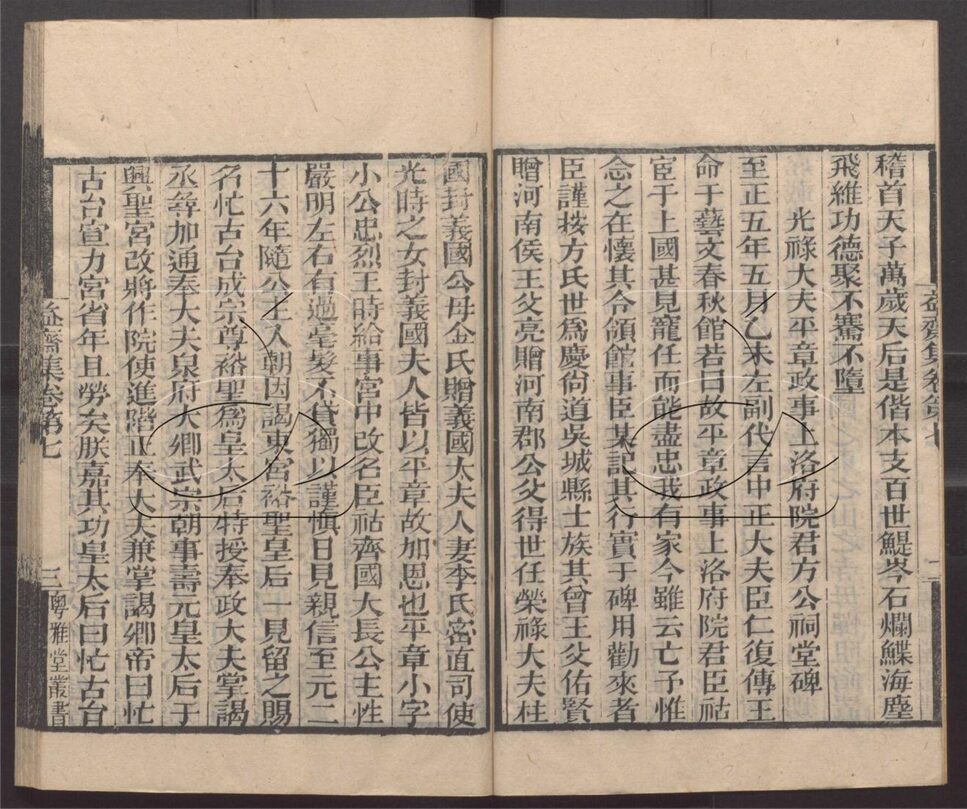 稽首天子萬歲天后是偕本支百世鯷岑石爛鰈海塵
飛維功德聚不騫不墮
光祿大夫平章政事上洛府院君方公祠堂碑
至正五年五月乙未左副代言中正大夫臣仁復傳王
命于藝文春秋館若曰故平章政事上洛府院君臣祜
宦于上國甚見寵任而能盡忠我有家今雖云亡予惟
念之在懷其令領館事臣某記其行實于碑用勸來者
臣謹按方氏世爲慶尙道吳城縣士族其曾王父佑賢
贈河南侯王父亮贈河南郡公父得世任榮祿大夫桂
益齋集卷第七
二
國封義國公母金氏贈義國太夫人妻李氏密直司使
光時之女封義國夫人皆以平章故加恩也平章小字
小公忠烈王時給事宮中改名臣祜齊國大長公主性
嚴明左右有過毫髮不貸獨以謹愼日見親信至元二
十六年隨公主入朝因謁東宮裕聖皇后一見留之賜
名忙古台成宗尊裕聖爲皇太后特授奉政大夫掌謁
丞尋加通奉大夫泉府大卿武宗朝事壽元皇太后于
興聖宮改將作院使進階正奉大夫兼掌謁卿帝曰忙
古台宣力宮省年且勞矣朕嘉其功皇太后曰忙古台
益齋集卷第七
三
粵雅堂叢書